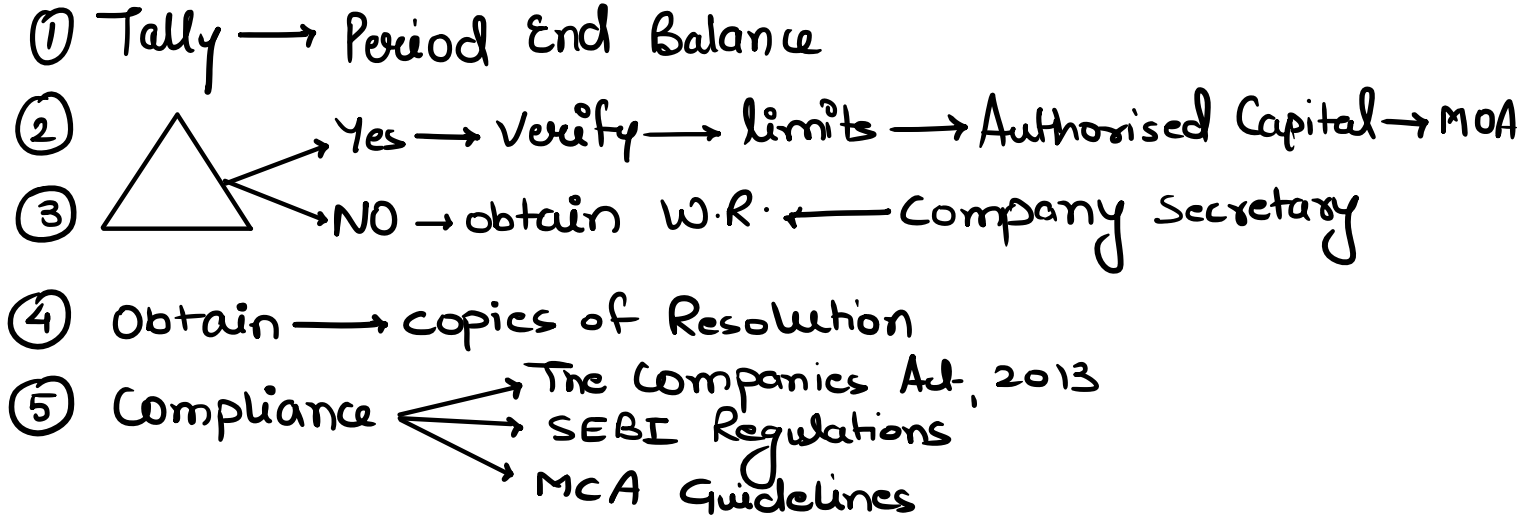 ① Tally → Period End Balance
② Yes → Verify → limits → Authorised Capital → MOA
③ NO → obtain W.R. ← Company Secretary
④ Obtain → copies of Resolution
⑤ Compliance → The Companies Act, 2013
→ SEBI Regulations
→ MCA Guidelines